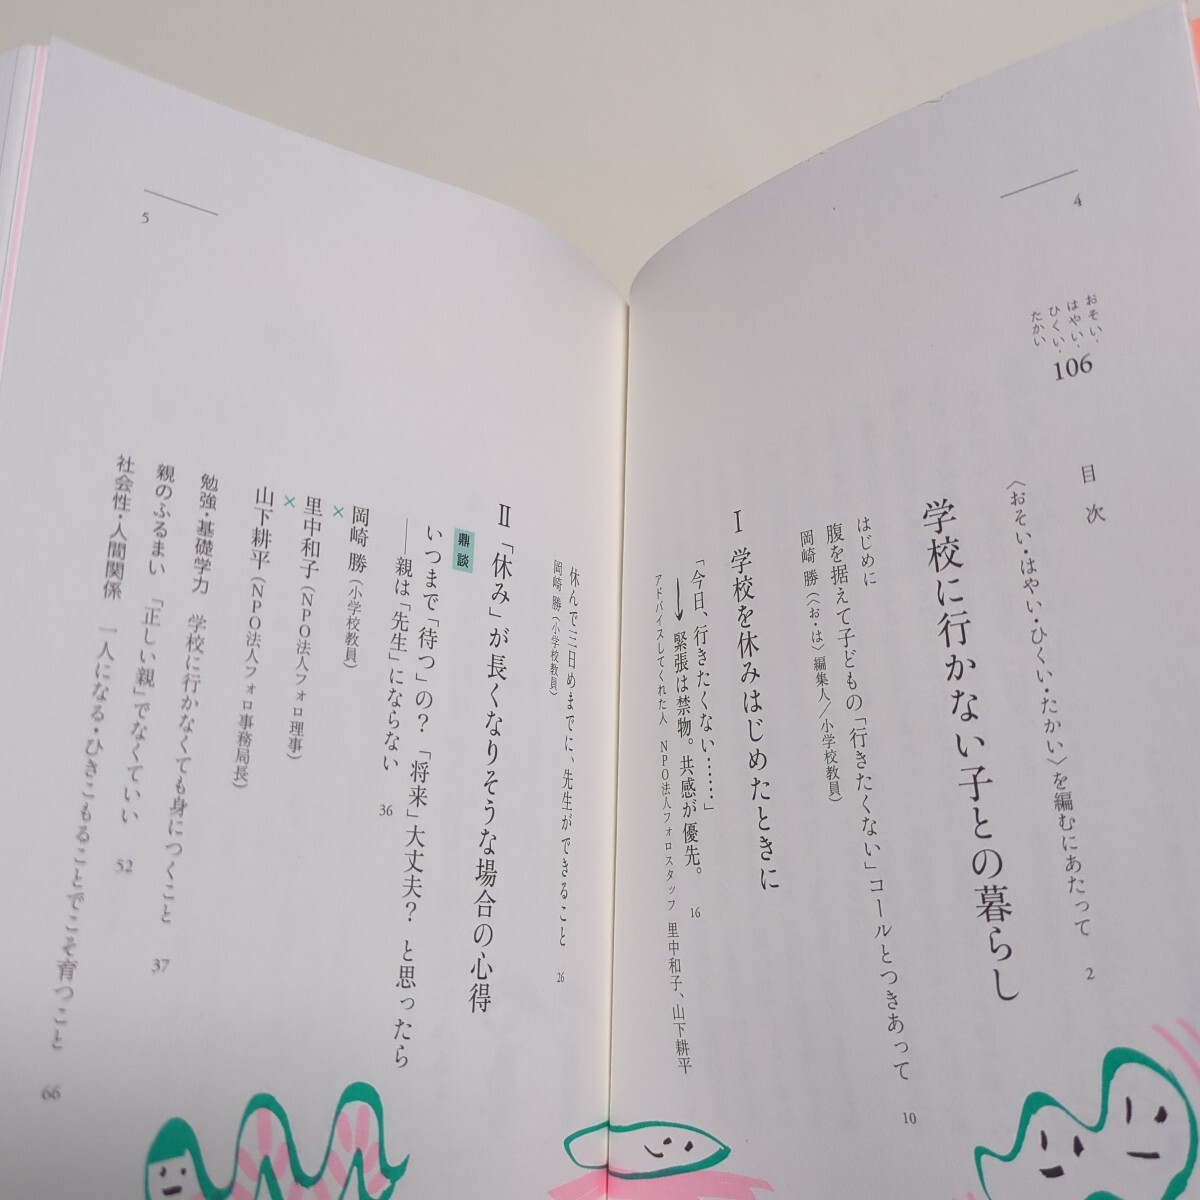 4
おそい・
はやい・
ひくい・
たかい
106
目次
〈おそい・はやい・ひくい・たかい〉を編むにあたって 2
学校に行かない子との暮らし
はじめに
腹を据えて子どもの「行きたくない」コールとつきあって 10
岡崎 勝(〈お・は〉編集人/小学校教員)
Ⅰ 学校を休みはじめたときに
「今日、行きたくない……」
→緊張は禁物。共感が優先。 16
アドバイスしてくれた人 NPO法人フォロスタッフ 里中和子、山下耕平
5
休んで三日めまでに、先生ができること 26
岡崎 勝(小学校教員)
Ⅱ 「休み」が長くなりそうな場合の心得
鼎談
いつまで「待つ」の? 「将来」大丈夫? と思ったら
——親は「先生」にならない 36
岡崎 勝(小学校教員)
×
里中和子(NPO法人フォロ理事)
×
山下耕平(NPO法人フォロ事務局長)
勉強・基礎学力 学校に行かなくても身につくこと 37
親のふるまい 「正しい親」でなくていい 52
社会性・人間関係 一人になる・ひきこもることでこそ育つこと 66